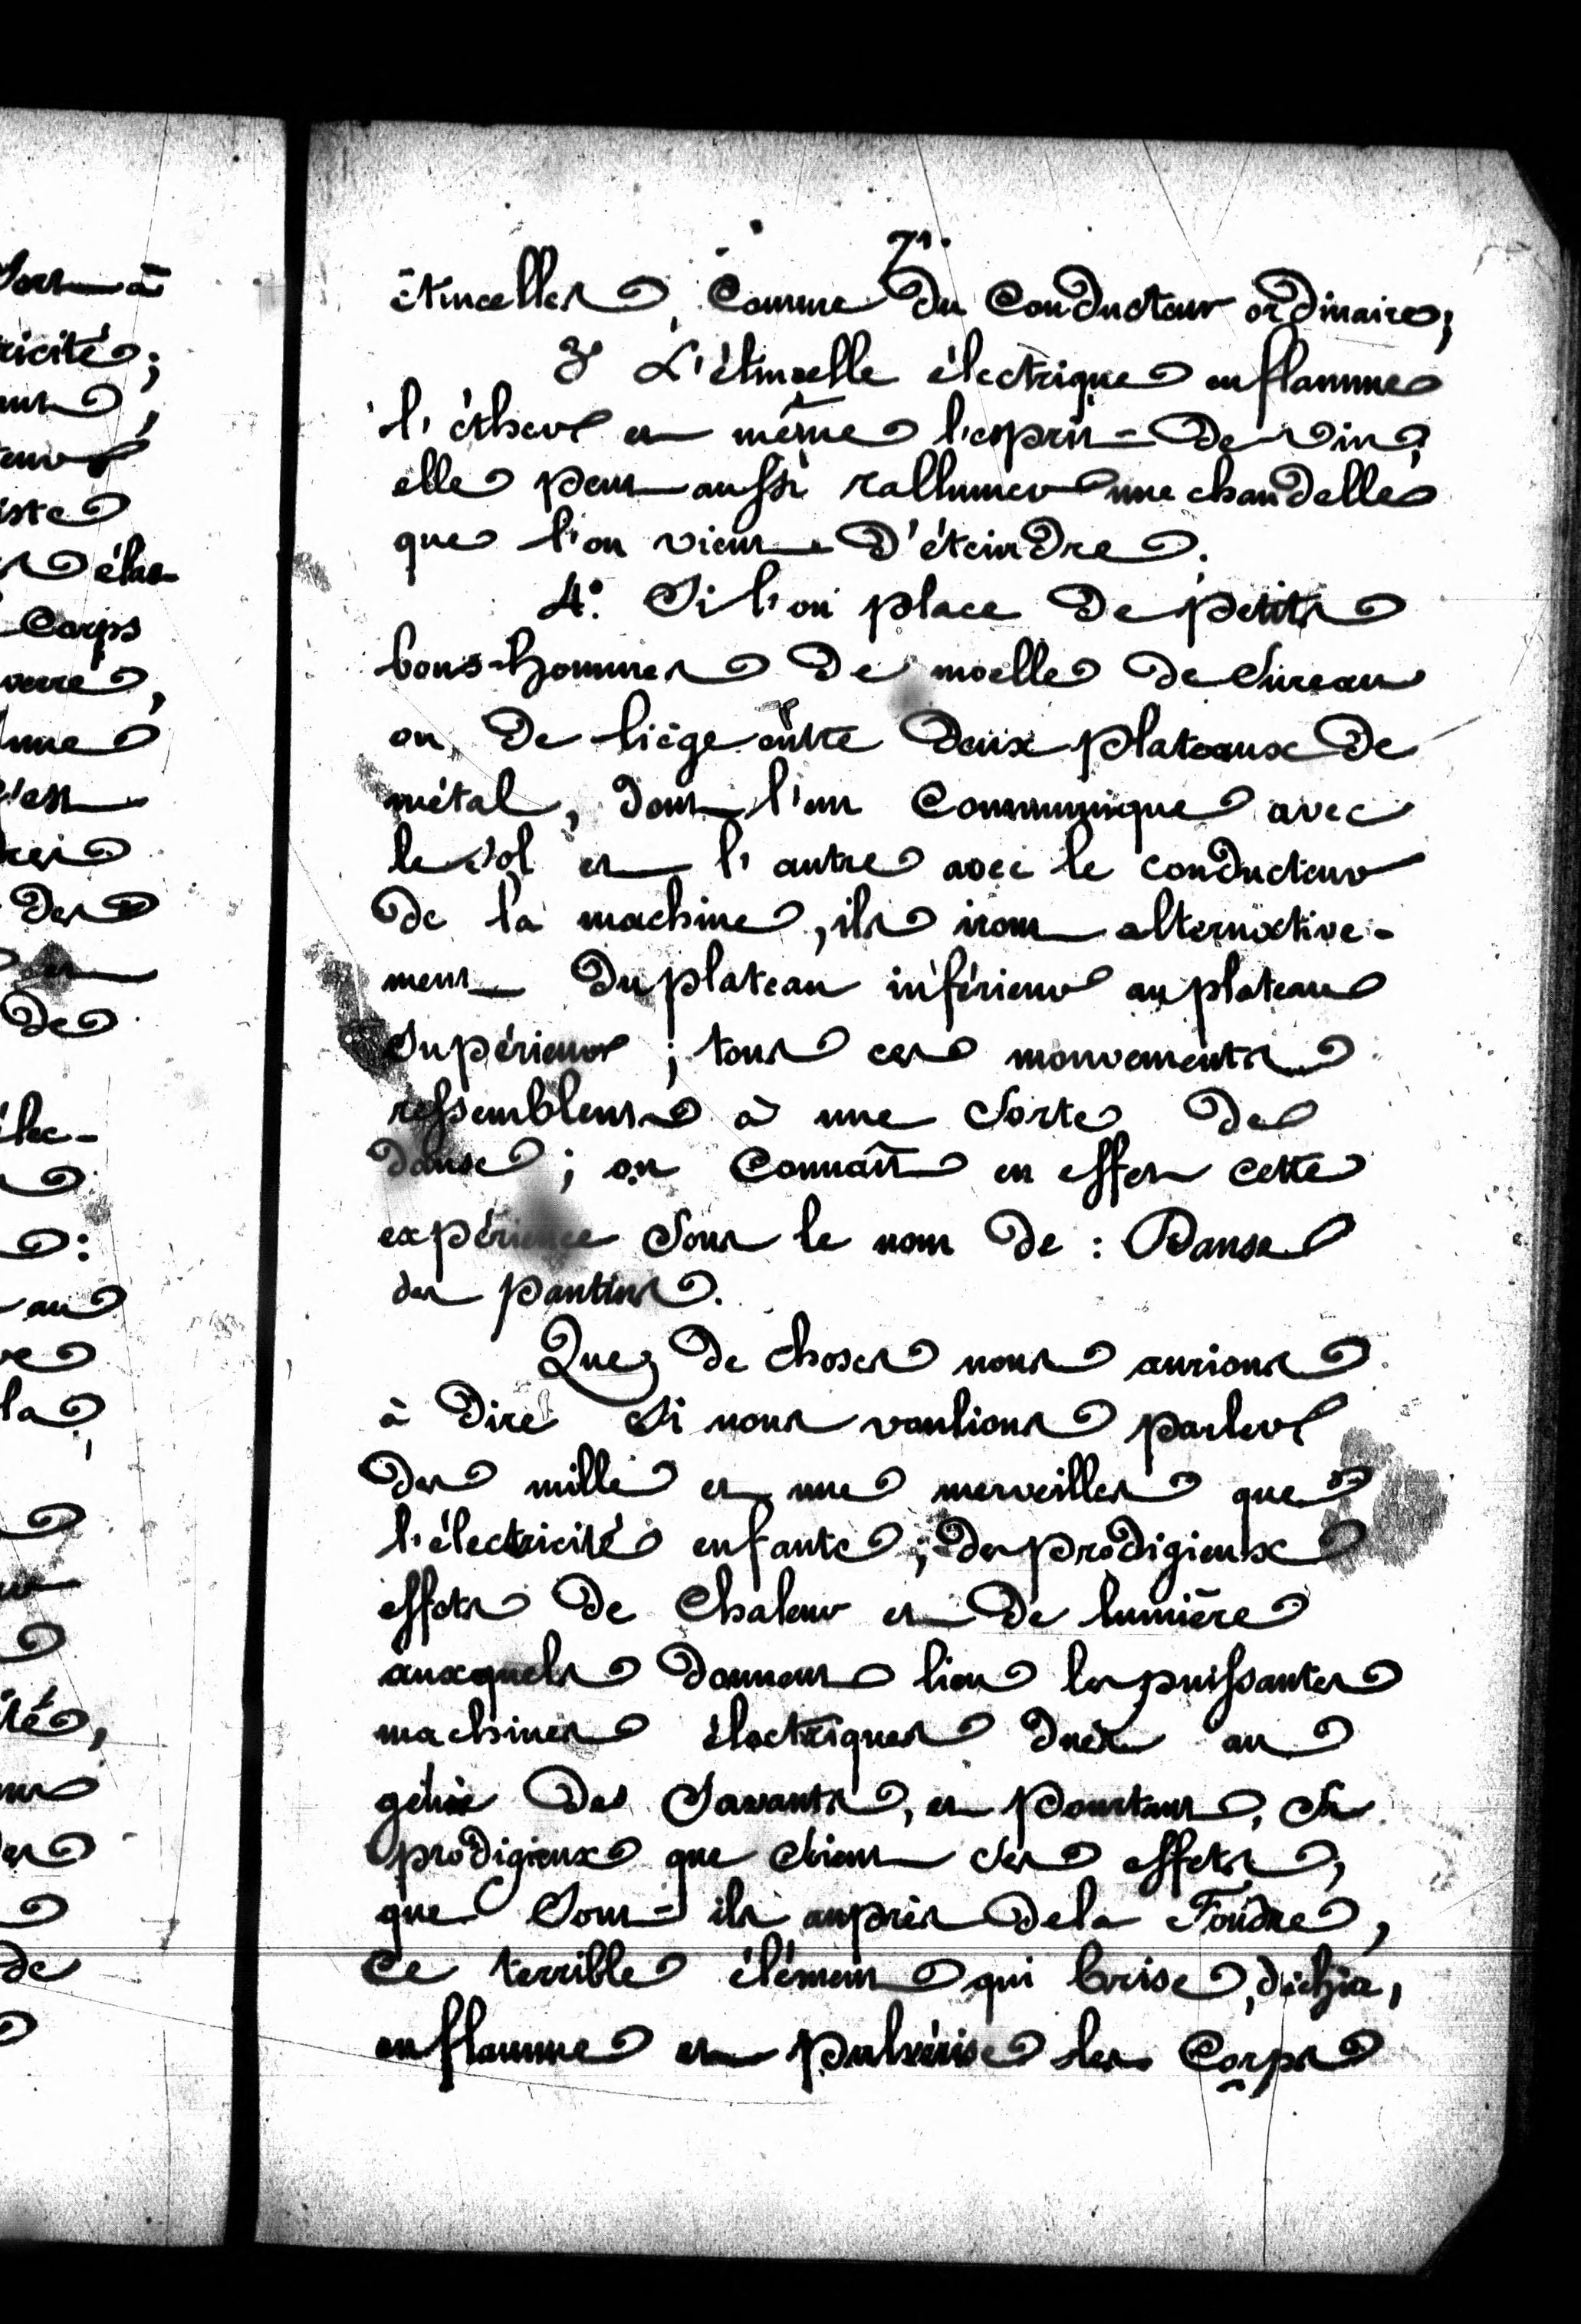 71.
étincelles, comme du Conducteur ordinaire;
3° L'étincelle électrique enflamme
l'éther et même l'esprit-de-vin;
elle peut aussi rallumer une chandelle
que l'on vient d'éteindre.
4°. Si l'on place de petits
bons-hommes de moelle de Sureau
ou de liège entre deux plateaux de
métal, dont l'un Communique avec
le sol et l'autre avec le conducteur
de la machine, ils iront alternative-
ment du plateau inférieur au plateau
Supérieur; tous ces mouvements
ressemblent à une Sorte de
danse; on Connaît en effet cette
expérience Sous le nom de : Danse
des pantins.
Que de choses nous aurions
à dire Si nous voulions parler
des mille et une merveilles que
l'électricité enfante; des prodigieux
effets de Chaleur et de lumière
auxquels donnent lieu les puissantes
machines électriques dues au
génie des Savants, et pourtant, Si
prodigieux que Soient Ses effets,
que Sont-ils auprès de la Foudre,
Ce terrible élément qui brise,
enflamme et pulvérise les Corps